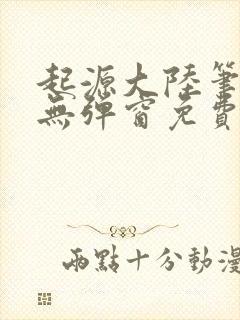 起源大陸筆
無彈窗免費
兩點十分動漫